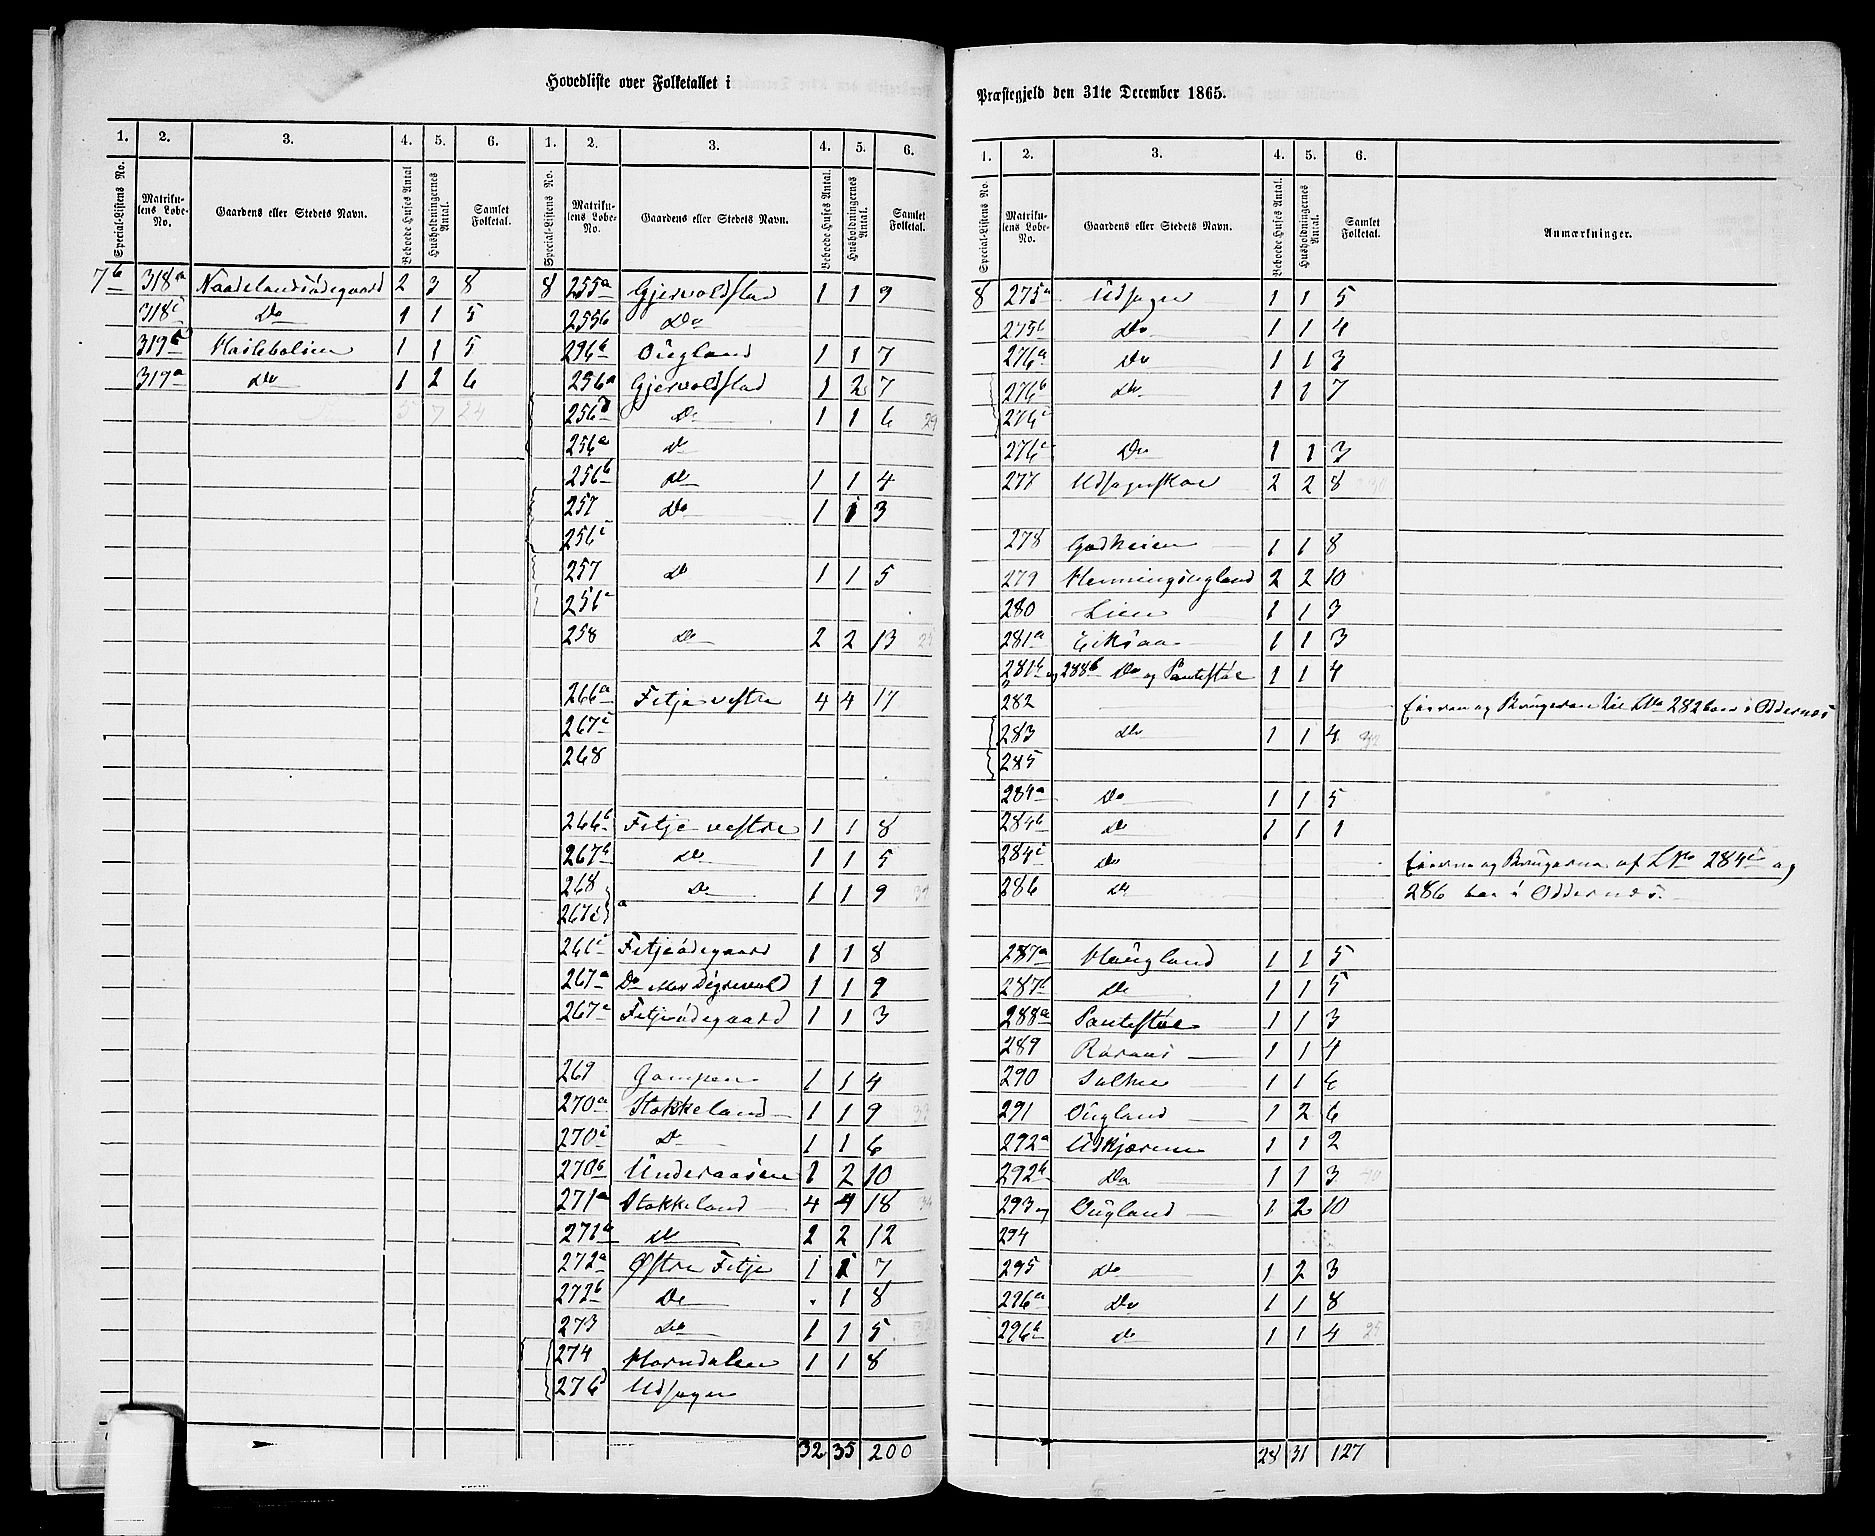 Hovedliste over Folketallet i
1. 2. 3. 4. 5. 6. 1. 2. 3. 4. 5. 6.
Special-Listens No. Matrikulens Løbe-No. Gaardens eller Stedets Navn. Beboede Huses Antal Husholdningernes Antal. Samlet Folketal. Special-Listens No. Matrikulens Løbe-No. Gaardens eller Stedets Navn. Beboede Huses Antal. Husholdningernes Antal. Samlet Folketal.
7b 318a Naadelandsødegaard 2 3 8
318c Do 1 1 5
319b Haslebakken 1 1 5
319a Do 1 2 6
5 7 24
8 255a Gjervoldstad 1 1 9
255b Do
296b Øugland 1 1 7
256a Gjervoldstad 1 2 7
256d Do 1 1 6 29
256a Do
256b Do 1 1 4
257 Do 1 1 3
256c
257 Do 1 1 5
256a
258 Do 2 2 13
266a Fitje vestre 4 4 17
267c
268
266b Fitje vestre 1 1 8
267b Do 1 1 5
268 Do 1 1 9
267c
266c Fitjeødegaard 1 1 8
267a Do 1 1 9
267e Fitjeødegaard 1 1 3
269 Jompen 1 1 4
270a Stokkeland 1 1 9
270c Do 1 1 6
270b Underaasen 1 2 10
271a Stokkeland 4 4 18
271a Do 2 2 12
272a Østre Fitje 1 1 7
272b Do . 1 8
273 Do 1 1 5
274 Horndalen 1 1 8
276d Udsagen
32 35 200
Præstegjeld den 31te December 1865.
1. 2. 3. 4. 5. 6.
Special-Listens No. Matrikulens Løbe-No. Gaardens eller Stedets Navn. Beboede Huses Antal. Husholdningernes Antal. Samlet Folketal. Anmærkninger.
8 275a Udsagen 1 1 5
275b Do 1 1 4
276a Do 1 1 3
276b Do 1 1 7
276c
276c Do 1 1 3
277 Udsagenskar 2 2 8
278 Godheien 1 1 8
279 Henningsugland 2 2 10
280 Lien 1 1 3
281a Eiksaa 1 1 3
281b og 288b Do og Pantestøl 1 1 4
282 Eieren og Brugeren til LNo 282 boe i Oddernes
283 Do 1 1 4
285
284a Do 1 1 5
284b Do 1 1 1
284c Do Eierne og Brugerne af LNo 284c og
286 Do 286 boe i Oddernes.
287a Haugland 1 1 5
287b Do 1 1 5
288a Pantestøl 1 1 3
289 Røraas 1 1 4
290 Solhei 1 1 6
291 Øugland 1 2 6
292a Udkjæren 1 1 2
292b Do 1 1 3
293 og Øugland 1 2 10
294
295 Do 1 2 3
296a Do 1 1 8
296b Do 1 1 4 25
28 31 127